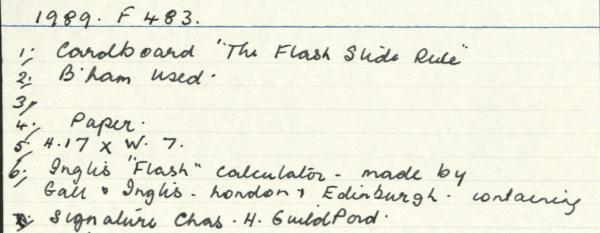 1989. F 483.
1; Cardboard "The Flash Slide Rule"
2; B'ham used.
3;
4; Paper.
5; H.17 x W. 7.
6; Inglis "Flash" calculator - made by
Gall & Inglis - London & Edinburgh. containing
Signature Chas. H. Guildford.